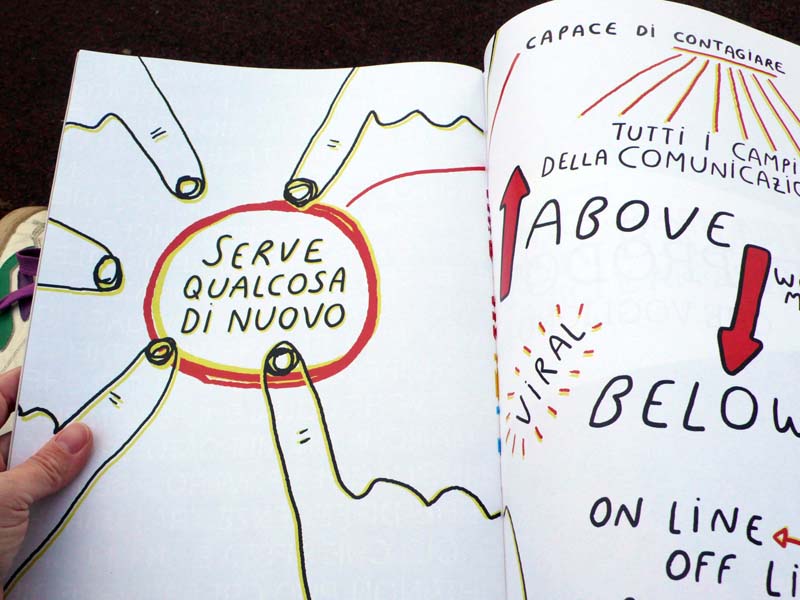 SERVE
QUALCOSA
DI NUOVO
CAPACE DI CONTAGIARE
TUTTI I CAMPI
DELLA COMUNICAZIO
ABOVE
VIRAL
BELOW
ON LINE
OFF LI